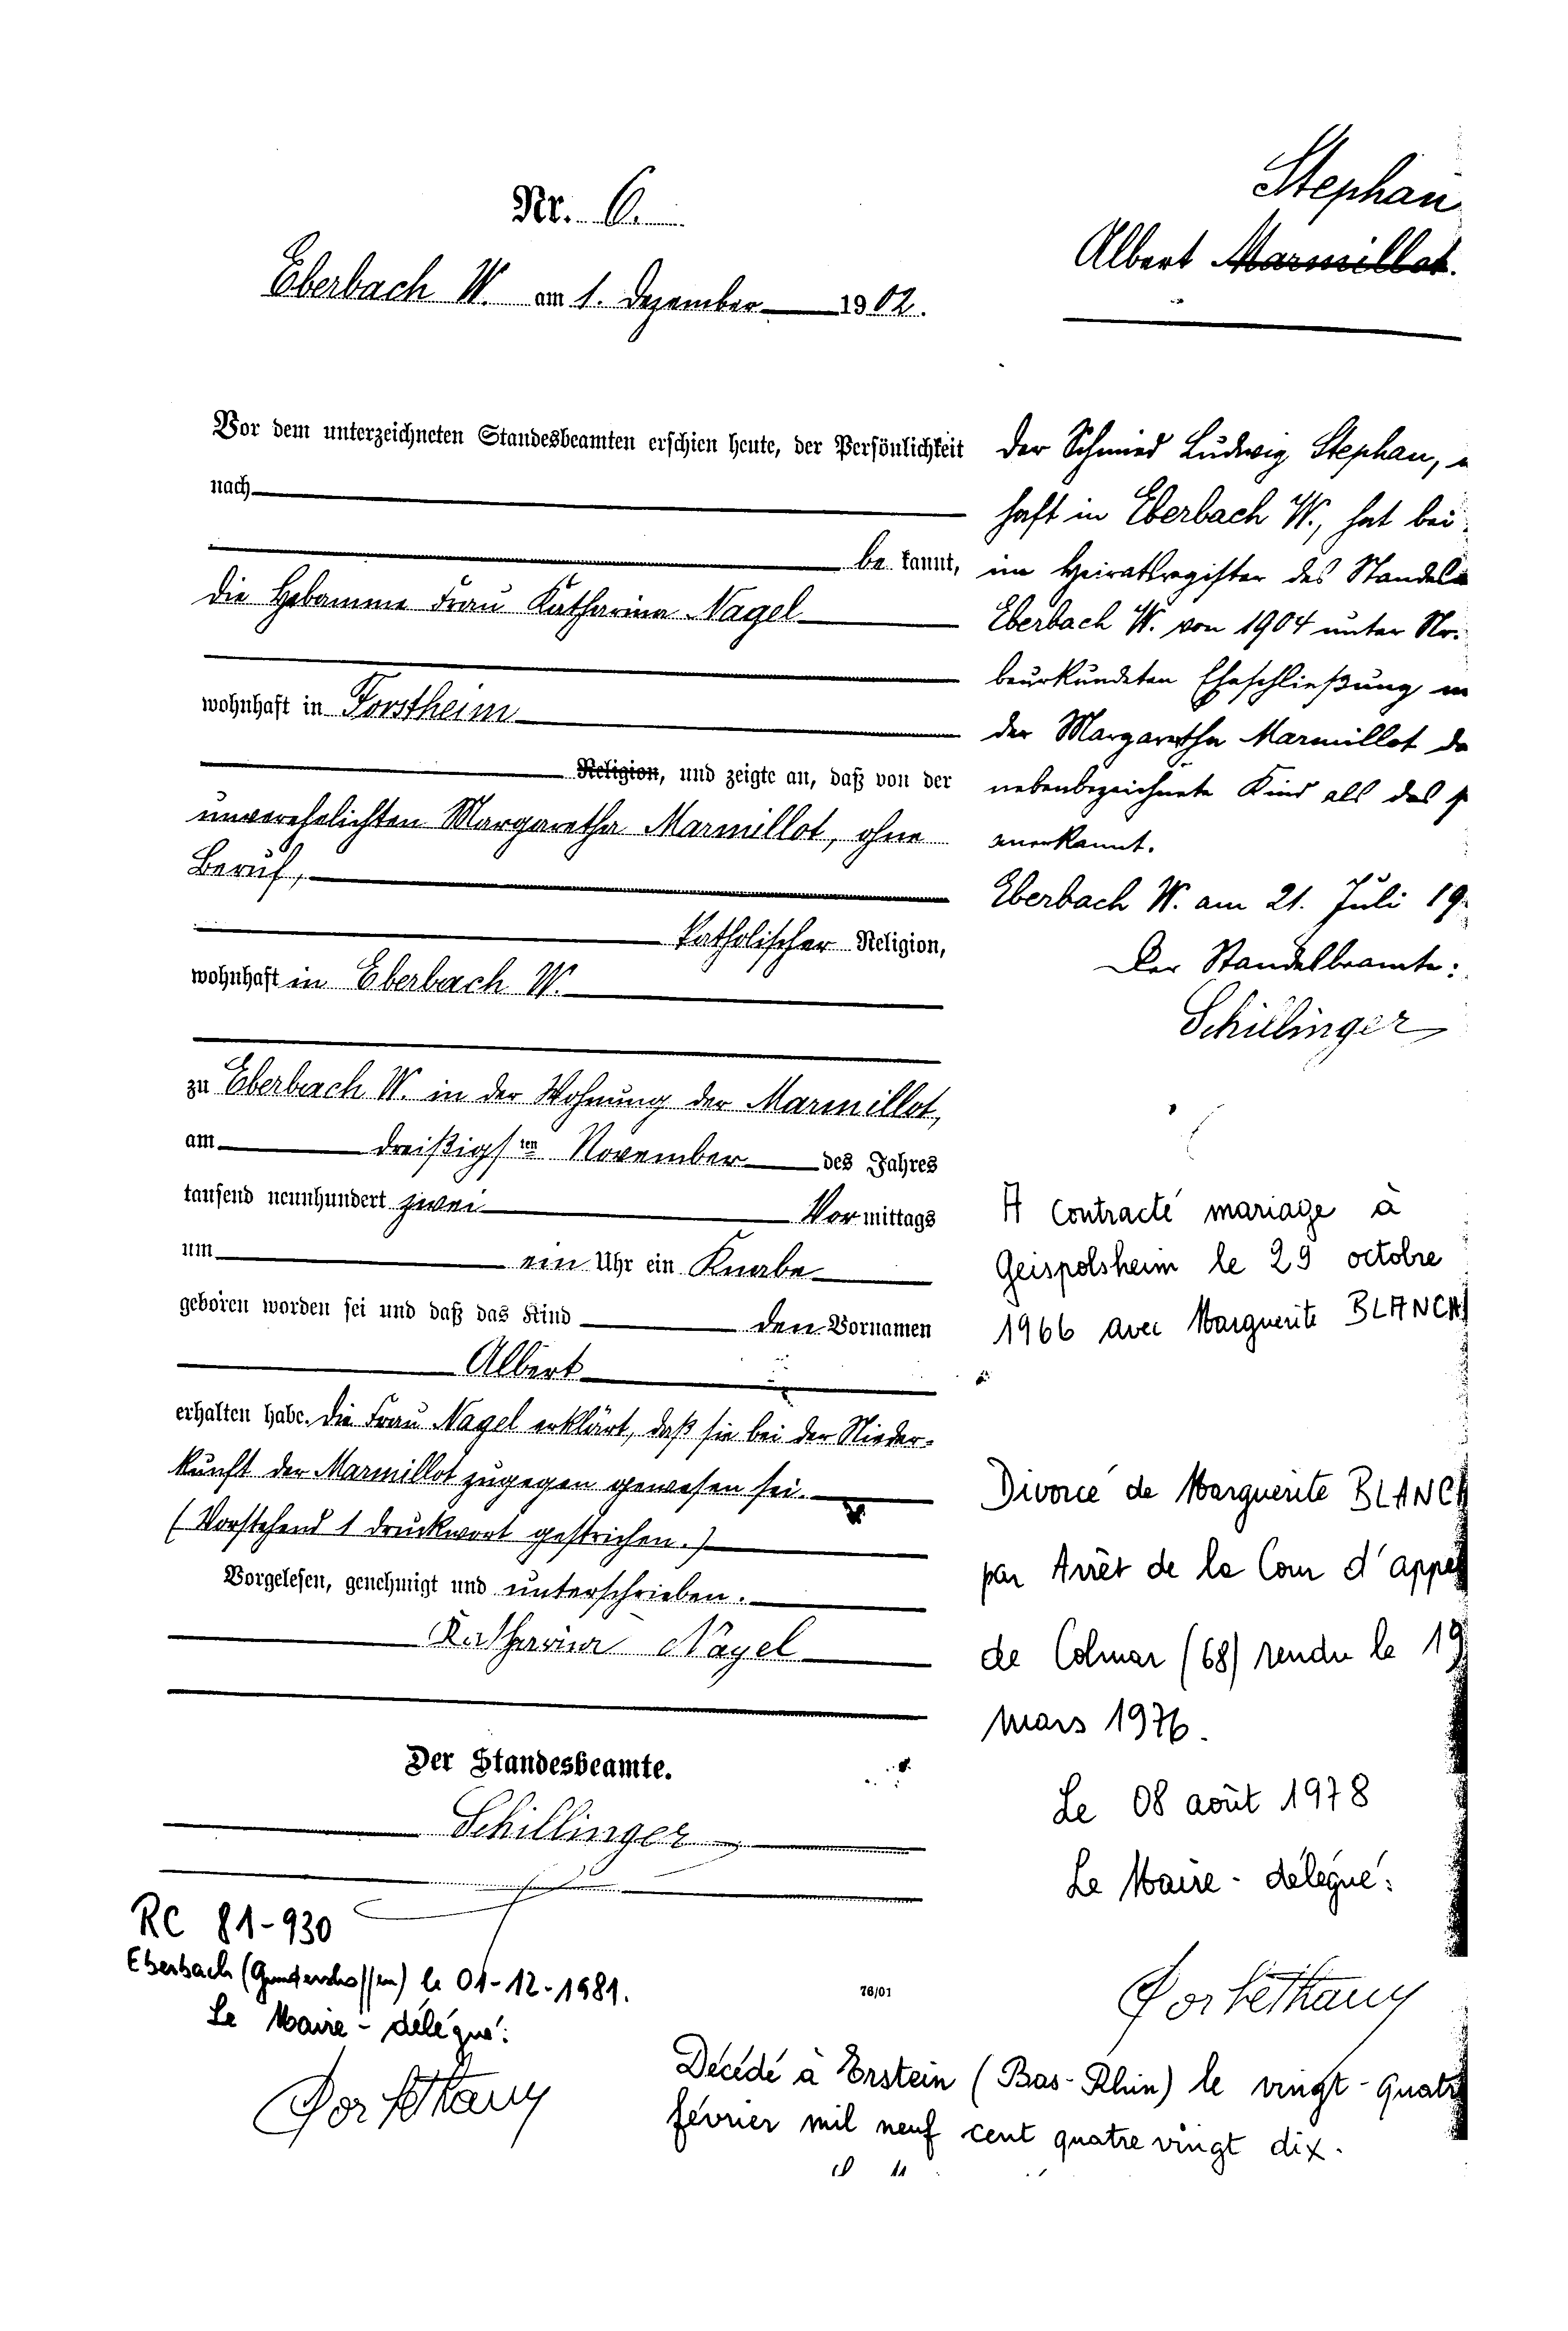 Nr. 6.
Eberbach W. am 1. Dezember 1902.
Stephan
Albert Marmillot.
Vor dem unterzeichneten Standesbeamten erschien heute, der Persönlichkeit
nach
be kannt,
die Hebamme Frau Katharina Nagel
wohnhaft in Forstheim
Religion, und zeigte an, daß von der
unverehelichten Margaretha Marmillot, ohne
Beruf,
katholischer Religion,
wohnhaft in Eberbach W.
zu Eberbach W. in der Wohnung der Marmillot,
am dreißigsten November des Jahres
tausend neunhundert zwei Vormittags
um ein Uhr ein Knabe
geboren worden sei und daß das Kind den Vornamen
Albert
erhalten habe. Die Frau Nagel erklärt, daß sie bei der Nieder-
kunft der Marmillot zugegen gewesen sei.
(Vorstehend 1 Druckwort gestrichen.)
Vorgelesen, genehmigt und unterschrieben.
Katharina Nagel
Der Standesbeamte.
Schillinger
Der Schmied Ludwig Stephan,
haft in Eberbach W., hat bei
im Heiratsregister des Standes
Eberbach W. von 1904 unter Nr.
beurkundeten Eheschließung m
der Margaretha Marmillot da
nebenbezeichnete Kind als das
anerkannt.
Eberbach W. am 21. Juli 19
Der Standesbeamte:
Schillinger
A contracté mariage à
Geispolsheim le 29 octobre
1966 avec Marguerite BLANCH
Divorcé de Marguerite BLANCH
par Arrêt de la Cour d'appel
de Colmar (68) rendu le 19
mars 1976.
Le 08 août 1978
Le Maire-délégué:
RC 81-930
Eberbach (Gundershoffen) le 01-12-1981.
Le Maire-délégué:
76/01
Décédé à Erstein (Bas-Rhin) le vingt-quatre
février mil neuf cent quatre vingt dix.